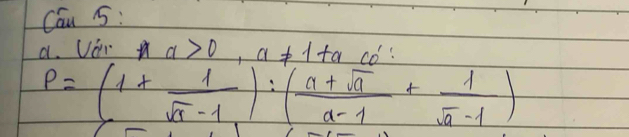 Câu 5:
a. Với a > 0, a ≠ 1 ta có:
P = (1 + 1/(√a - 1)) : ((a + √a)/(a - 1) + 1/(√a - 1))